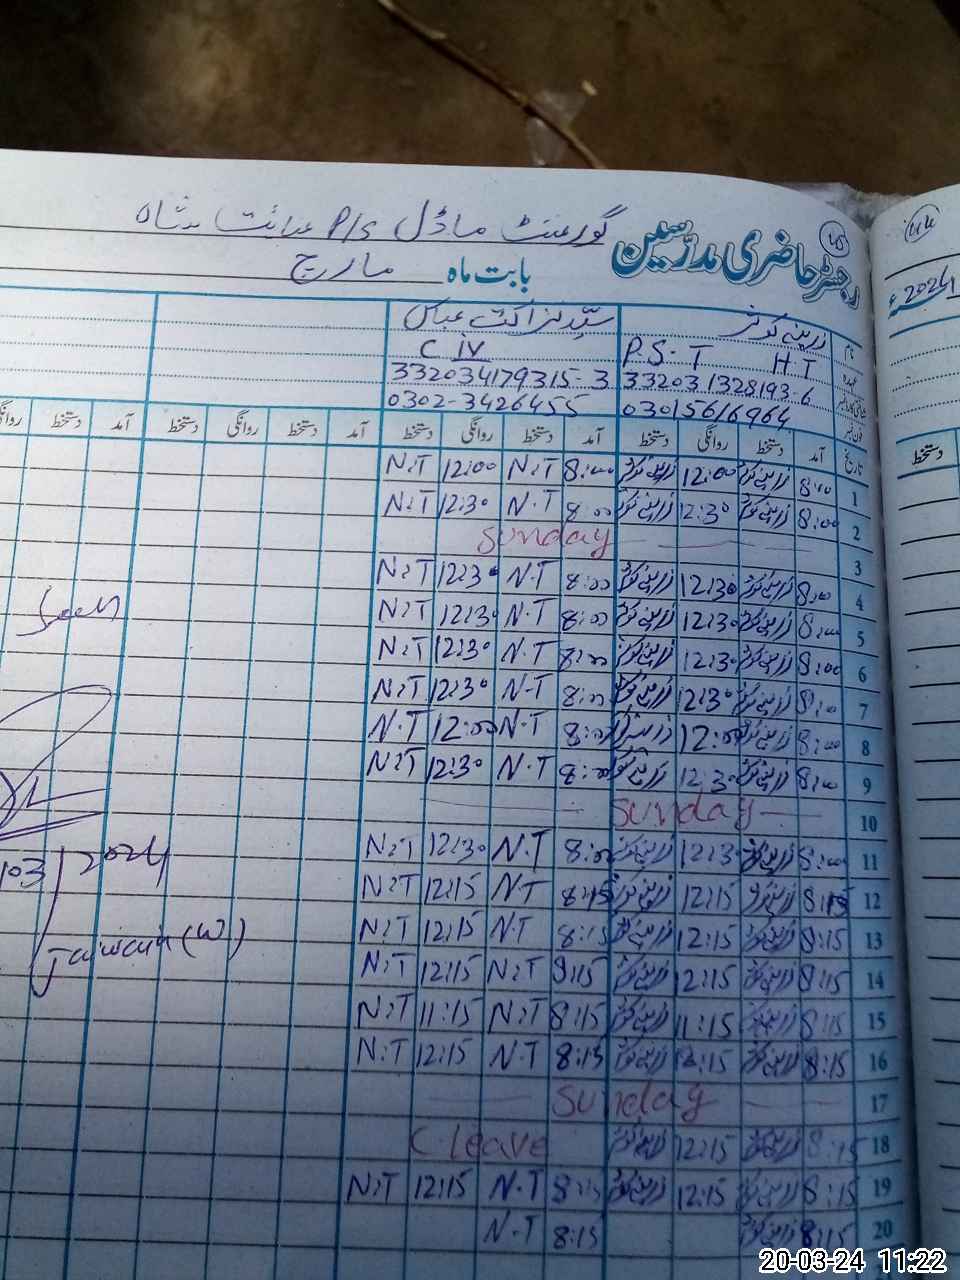 رجسٹر حاضری مدرسین
گورنمنٹ ماڈل P/S
بابت ماہ مارچ
2024ء
نام زرینہ کوثر سید نزاکت عباس
عہدہ P.S.T H.T C IV
شناختی کارڈ نمبر 332031328193-6 332034179315-3
فون نمبر 03015616964 0302-3426455
تاریخ آمد دستخط روانگی دستخط آمد دستخط روانگی دستخط آمد دستخط روانگی دستخط آمد دستخط روانگی
دستخط
1 8:00 زرینہ کوثر 12:00 زرینہ کوثر 8:00 N:T 12:00 N:T
2 8:00 زرینہ کوثر 12:30 زرینہ کوثر 8:00 N.T 12:30 N:T
3 Sunday
4 8:00 زرینہ کوثر 12:30 زرینہ کوثر 8:00 N.T 12:30 N:T
5 8:00 زرینہ کوثر 12:30 زرینہ کوثر 8:00 N.T 12:30 N:T
6 8:00 زرینہ کوثر 12:30 زرینہ کوثر 8:00 N.T 12:30 N:T
7 8:00 زرینہ کوثر 12:30 زرینہ کوثر 8:00 N-T 12:30 N:T
8 8:00 زرینہ کوثر 12:00 زرینہ کوثر 8:00 N.T 12:00 N.T
9 8:00 زرینہ کوثر 12:30 زرینہ کوثر 8:00 N.T 12:30 N:T
10 Sunday
11 8:00 زرینہ کوثر 12:30 زرینہ کوثر 8:00 N.T 12:30 N:T
12 8:15 زرینہ کوثر 12:15 زرینہ کوثر 8:15 N.T 12:15 N:T
13 8:15 زرینہ کوثر 12:15 زرینہ کوثر 8:15 N.T 12:15 N:T
14 8:15 زرینہ کوثر 12:15 زرینہ کوثر 8:15 N:T 12:15 N:T
15 8:15 زرینہ کوثر 11:15 زرینہ کوثر 8:15 N:T 11:15 N:T
16 8:15 زرینہ کوثر 12:15 زرینہ کوثر 8:15 N.T 12:15 N:T
17 Sunday
18 8:15 زرینہ کوثر 12:15 زرینہ کوثر C.leave
19 8:15 زرینہ کوثر 12:15 زرینہ کوثر 8:15 N.T 12:15 N:T
20 8:15 زرینہ کوثر 8:15 N.T
Seen
03/2024
(W)
20-03-24 11:22